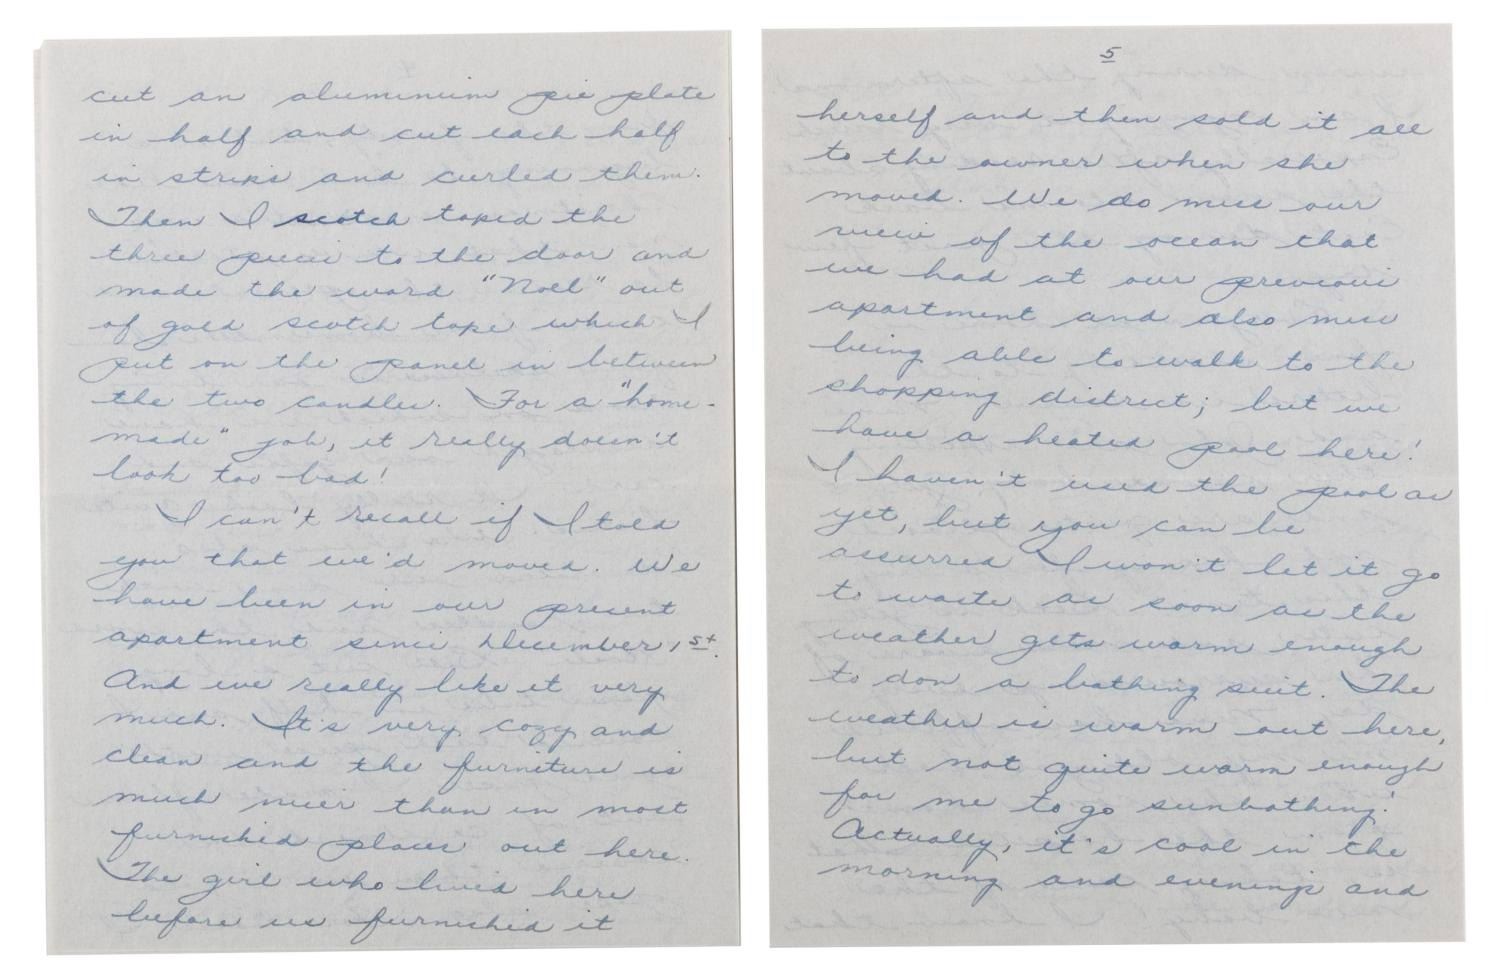 cut an aluminium pie plate
in half and cut each half
in strips and curled them.
Then I scotch taped the
three pieces to the door and
made the word "Noel" out
of gold scotch tape which I
put on the panel in between
the two candles. For a "home-
made" job, it really doesn't
look too bad!
I can't recall if I told
you that we'd moved. We
have been in our present
apartment since December 1st.
And we really like it very
much. It's very cozy and
clean and the furniture is
much nicer than in most
furnished places out here.
The girl who lived here
before us furnished it
5
herself and then sold it all
to the owner when she
moved. We do miss our
view of the ocean that
we had at our previous
apartment and also miss
being able to walk to the
shopping district; but we
have a heated pool here!
I haven't used the pool as
yet, but you can be
assurred I won't let it go
to waste as soon as the
weather gets warm enough
to don a bathing suit. The
weather is warm out here,
but not quite warm enough
for me to go sunbathing!
Actually, it's cool in the
morning and evenings and